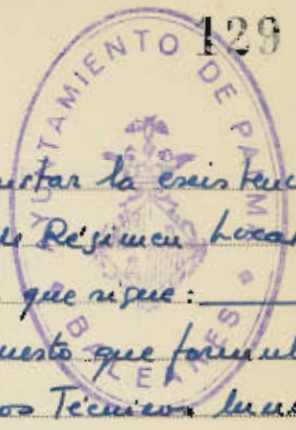 129
AYUNTAMIENTO DE PALMA
BALEARES
la existenc
de Régimen Loca
que sigue:
uesto que formul
os Técnicos